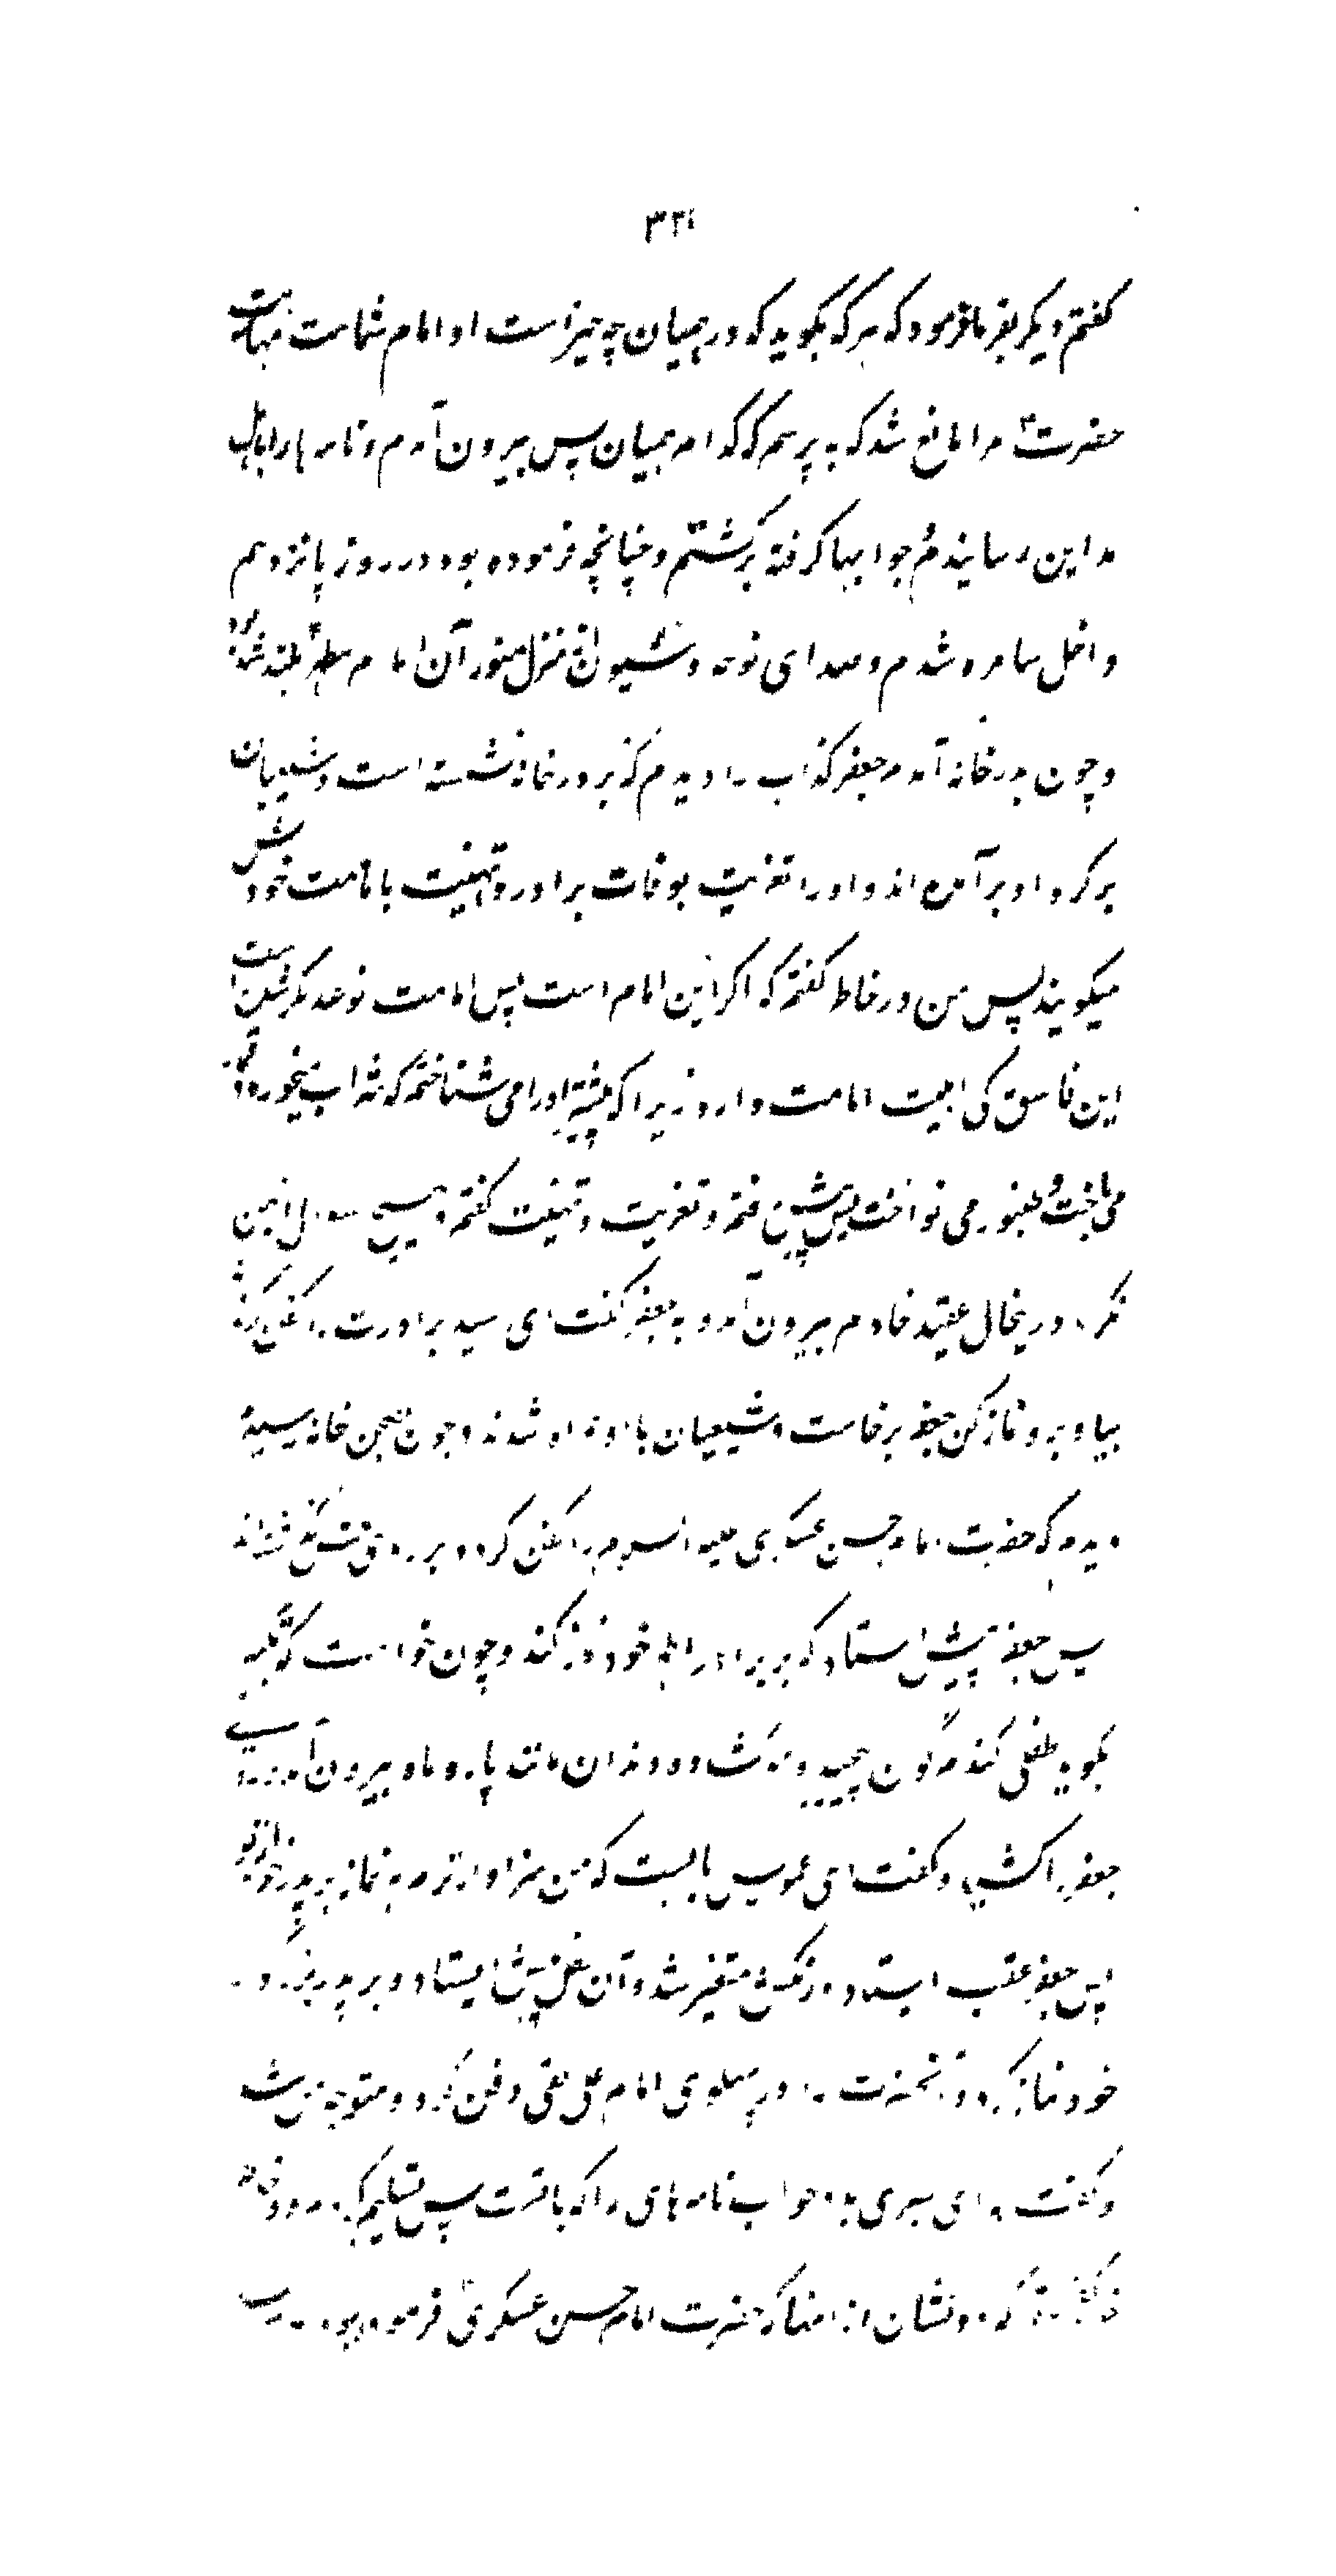 ۳۲۱
کفتم دیکر بفرما فرمود که هر که بکوید که در همیان چه چیز است او امام شماست مهابت
حضرت مرا مانع شد که بپرسم که کدام همیان پس بیرون آمدم و نامه ها را باهل
مداین رسانیدم و جوابها کرفته برکشتم و چنانچه فرموده بود در روز پانزدهم
داخل سامره شدم و صدای نوحه و شیون از منزل منور آن امام مطهر بلند شده بود
و چون بدر خانه آمدم جعفر کذاب را دیدم که بر در خانه نشسته است و شیعیان
بر کرد او بر آمده اند و او را تعزیت بوفات برادر و تهنیت بامامت خودش
میکویند پس من در خاطر کفتم که اکر این امام است پس امامت نوعدیکر شده است
این فاسق کی اهلیت امامت دارد زیرا که پیشتر او را می شناختم که شراب میخورد و قمار
می باخت و طنبور می نواخت پس پیش رفتم و تعزیت و تهنیت کفتم و هیچ سوال از من
نکرد در ینحال عقید خادم بیرون آمد و به جعفر کفت ای سید برادرت را کفن کرده اند
بیا و برو نماز کن جعفر برخاست و شیعیان با او همراه شدند و چون بصحن خانه رسیدیم
دیدم که حضرت امام حسن عسکری علیه السلام را کفن کرده بر روی نعش کذاشته اند
پس جعفر پیش استاد که بر برادر اطهر خود نماز کند و چون خواست که تکبیر
بکوید طفلی کندم کون پیچیده موی کشاده دندان مانند پاره ماه بیرون آمد و ردای
جعفر را کشید و کفت ای عمو پس بایست که من سزاوارترم به نماز بر پدر خود از تو
پس جعفر عقب ایستاد و رنکش متغیر شد و آن طفل پیش ایستاد و بر پدر بزرکوار
خود نماز کرد و آنحضرت را در پهلوی امام علی نقی دفن کرد و متوجه من شد
و کفت ای بصری بده جواب نامه های را که با تست پس تسلیم کردم و در خاطر
خود کفتم که دو نشان از آنها که حضرت امام حسن عسکری فرموده بود